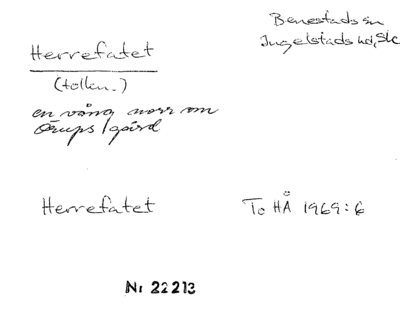 Herrefatet
Benestads sn
Ingelstads hd, Sk
(tolkn.)
en vång norr om
Örups/gård
Herrefatet
To HÅ 1969:6
Nr 22213